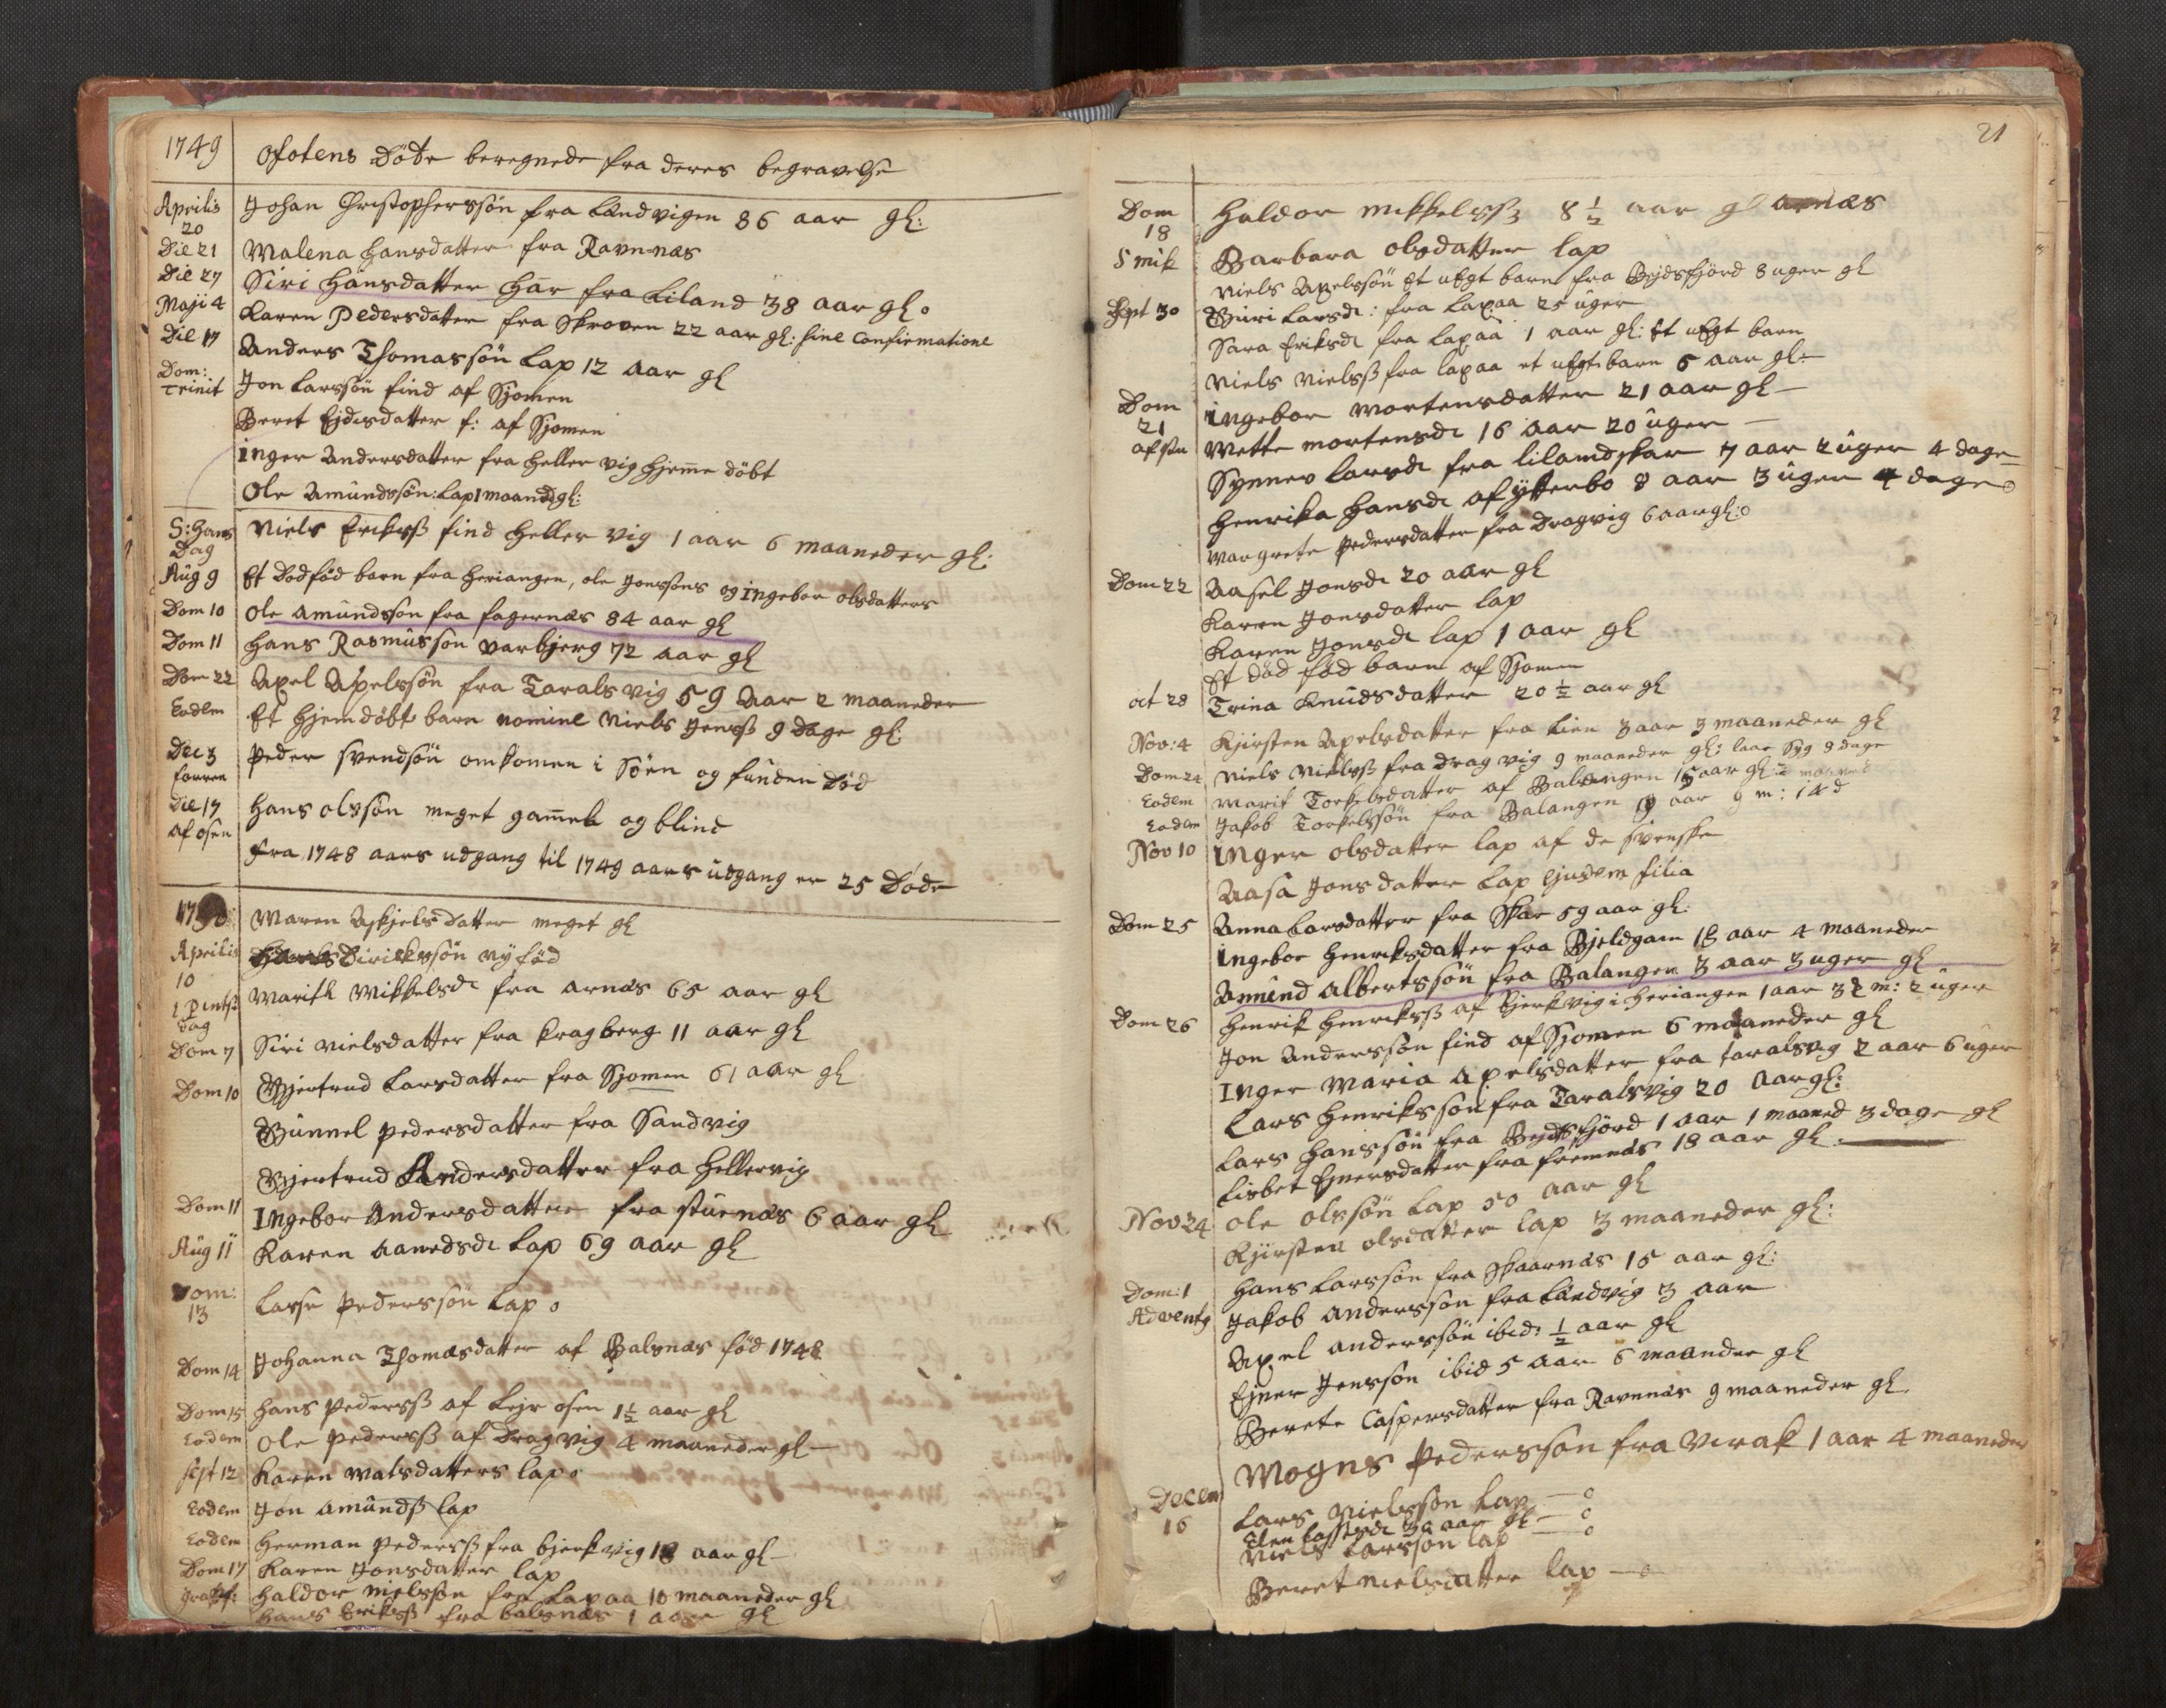 1749 Ofotens Døde beregnede fra deres begravelse
Aprilis 20 Johan Christophersøn fra Landvigen 86 aar gl:
Die 21 Malena Hansdatter fra Ravnnæs
Die 27 Siri Hansdatter Har fra Liland 38 aar gl.
Maji 4 Karen Pedersdatter fra Skroven 22 aar gl: sine Confirmatione
Die 17 Anders Thomassøn Lap 12 aar gl
Dom: Trinit Jon Larssøn find af Sjomen
Beret Ejdisdatter f: af Sjomen
Inger Andersdatter fra Hellervig hjemme døbt
Ole Amundssøn: Lap 1 maaned gl:
S: Hans Dag Niels Erikss find Hellervig 1 aar 6 maaneder gl:
Aug 9 Et Dødfød barn fra Heriangen, ole Jonssøns og Ingebor olsdatters
Dom 10 Ole Amundsøn fra fagernæs 84 aar gl
Dom 11 Hans Rasmussøn Varbjerg 72 aar gl
Dom 22 Axel Axelssøn fra Taralsvig 59 Aar 2 maaneder
Eodem Et hjemdøbt barn nomine Niels Jenss 9 Dage gl:
Dec 3 Peder Svendsøn omkomen i Søen og funden Død
Die 17 af osen Hans olssøn meget gammel og blind
Fra 1748 aars udgang til 1749 aars udgang er 25 Døde
1750: Maren Askjelsdatter meget gl
Aprilis 10 Dirikssøn nyfød
1 Pints dag Marith Mikkelsdr fra Arnæs 65 aar gl
Dom 7 Siri Nielsdatter fra Kragberg 11 aar gl
Dom 10 Gjertrud Larsdatter fra Sjomen 61 aar gl
Gunnel Pedersdatter fra Sandvig
Gjertrud Andersdatter fra Hellervig
Dom 11 Ingebor Andersdatter fra Stuenæs 6 aar gl
Aug 11 Karen Aamedsdr Lap 69 aar gl
Dom: 13 Lasse Pederssøn Lap
Dom 14 Johanna Thomasdatter af Balsnæs fød 1748
Dom 15 Hans Pederss af Lejr osen 1 1/2 aar gl
Eodem Ole Pederss af Dragvig 4 maaneder gl
Sept 12 Karen Matsdatters lap
Eodem Jon Amundss lap
Eodem Herman Pederss fra bjerkvig 18 aar gl
Dom 17 Karen Jonsdatter lap
Haldor Nielssøn fra Lapaa 10 maaneder gl
Hans Erikss fra balsnæs 1 aar gl
21
Dom 18 Haldor Mikkelss 8 1/2 aar gl arnæs
S Mik Barbara olsdatter lap
Niels Axelssøn Et uegt barn fra Bejdsfjord 8 uger gl
Sept 30 Guri Larsdr: fra Lapaa 25 uger
Sara Eriksdr fra Lapaa 1 aar gl: Et uegt barn
Niels Nielss fra lapaa et uegt barn 6 aar gl
Dom 21 Ingebor Mortensdatter 21 aar gl
Mette Mortensdr 16 aar 20 uger
Synnev Larsdr fra lilandskar 7 aar 2 uger 4 dage
Henrika Hansdr af ytterbo 8 aar 3 uger 4 dage
Margrete Pedersdatter fra Dragvig 6 aar gl:
Dom 22 Aasel Jonsdr 20 aar gl
Karen Jonsdatter lap
Karen Jonsdr lap 1 aar gl
Et død fød barn af Sjomen
Oct 28 Trina Knudsdatter 20 1/2 aar gl
Nov: 4 Kjirsten Axelsdatter fra Lien 3 aar 3 maaneder gl
Dom 24 Niels Nielss fra Dragvig 9 maaneder gl: laae Syg 9 dage
Eodem Marit Torkelsdatter af Balangen 15 aar gl: 2 maaned
Eodem Jakob Torkelssøn fra Balangen 9 aar 9 m: 14 d
Nov 10 Inger olsdatter lap af de svenske
Aasa Jonsdatter Lap ejusdem filia
Dom 25 Anna Larsdatter fra Skar 59 aar gl:
Ingebor Henriksdatter fra Bjeldgam 18 aar 4 maaneder
Amund Albertssøn fra Balangen 3 aar 3 uger gl
Dom 26 Henrik Henrikss af Bjerkvig i Heriangen 1 aar m: 2 uger
Jon Anderssøn find af Sjomen 6 maaneder gl
Inger Maria Axelsdatter fra Taralsvig 2 aar 6 uger
Lars Henrikssøn fra Taralsvig 20 Aar gl:
Lars Hanssøn fra Bejdsfjord 1 aar 1 maaned 3 dage gl
Lisbet Ejnersdatter fra fremnæs 18 aar gl.
Nov 24 Ole olssøn Lap 50 aar gl
Kjirsten olsdatter lap 3 maaneder gl:
Dom: 1 Adventg Hans Larssøn fra Skaarnæs 15 aar gl:
Jakob Anderssøn fra Landvig 3 aar
Axel anderssøn ibid: 1/2 aar gl
Ejner Jenssøn ibid 5 aar 6 maander gl
Berete Caspersdatter fra Ravnnæs 9 maaneder gl.
Mogns Pederssøn fra Virak 1 aar 4 maaneder
Decem 16 Lars Nielssøn Lap
Elen Lassesdr 30 aar gl
Niels Larssøn lap
Beret Nielsdatter lap